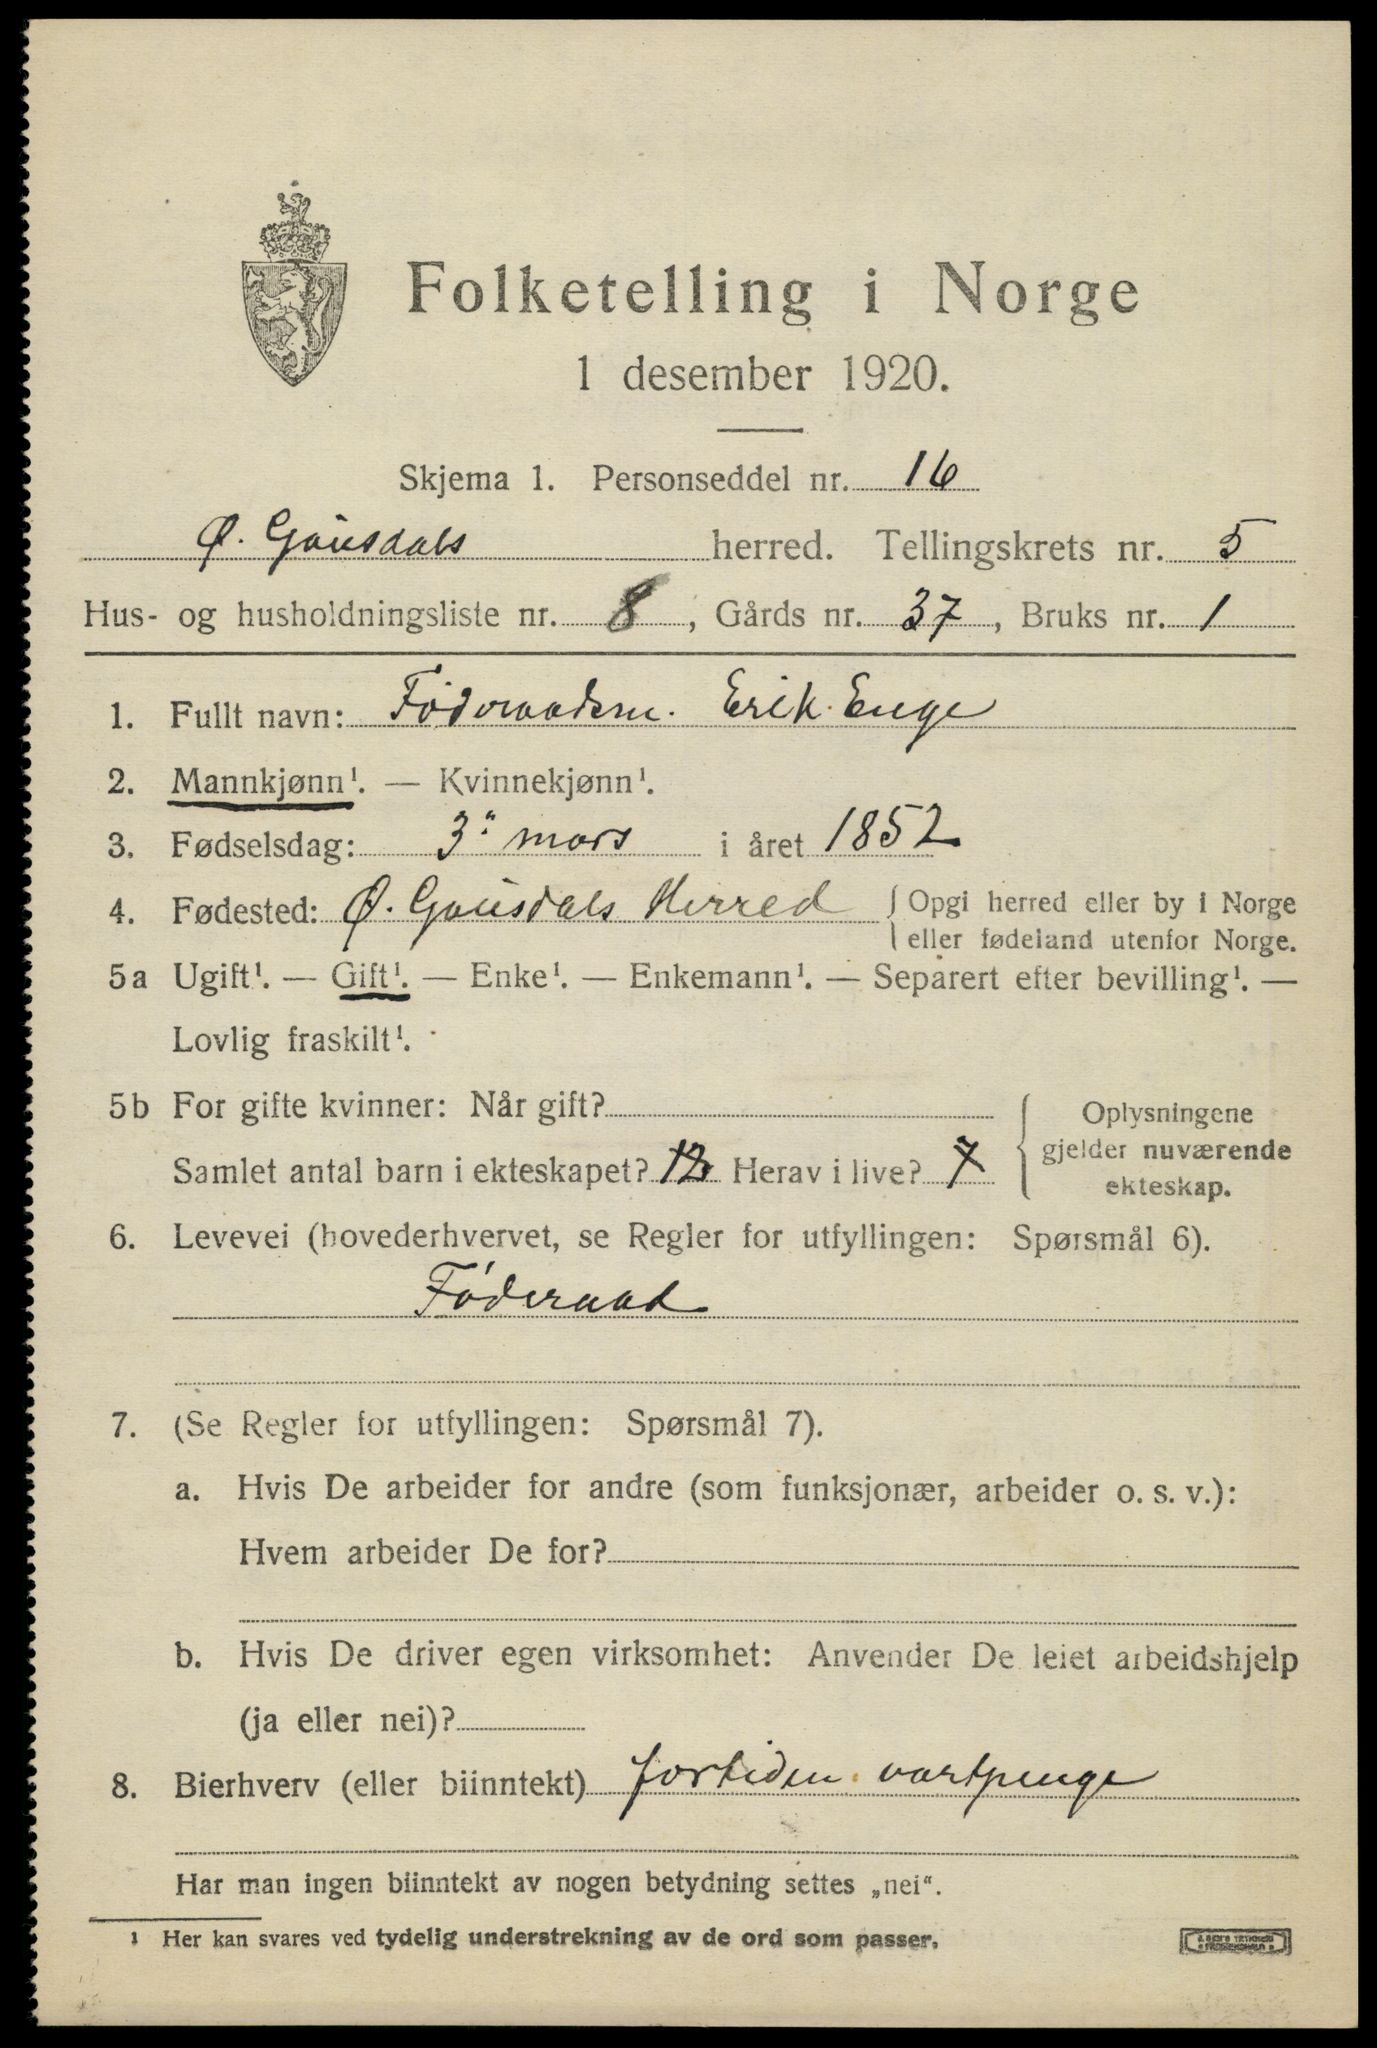 Folketelling i Norge
1 desember 1920.
Skjema 1. Personseddel nr. 16
Ø. Gausdals herred. Tellingskrets nr. 5
Hus- og husholdningsliste nr. 8, Gårds nr. 37, Bruks nr. 1
1. Fullt navn: Føderaadsm. Erik Enge
2. Mannkjønn¹. — Kvinnekjønn¹.
3. Fødselsdag: 3" mars i året 1852
4. Fødested: Ø. Gausdals Herred { Opgi herred eller by i Norge
eller fødeland utenfor Norge.
5a Ugift¹. — Gift¹. — Enke¹. — Enkemann¹. — Separert efter bevilling¹. —
Lovlig fraskilt¹.
5b For gifte kvinner: Når gift?
Samlet antal barn i ekteskapet? Herav i live? 7
{ Oplysningene
gjelder nuværende
ekteskap.
6. Levevei (hovederhvervet, se Regler for utfyllingen: Spørsmål 6).
Føderaad
7. (Se Regler for utfyllingen: Spørsmål 7).
a. Hvis De arbeider for andre (som funksjonær, arbeider o. s. v.):
Hvem arbeider De for?
b. Hvis De driver egen virksomhet: Anvender De leiet arbeidshjelp
(ja eller nei)?
8. Bierhverv (eller biinntekt) fortiden
Har man ingen biinntekt av nogen betydning settes „nei“.
¹ Her kan svares ved tydelig understrekning av de ord som passer.